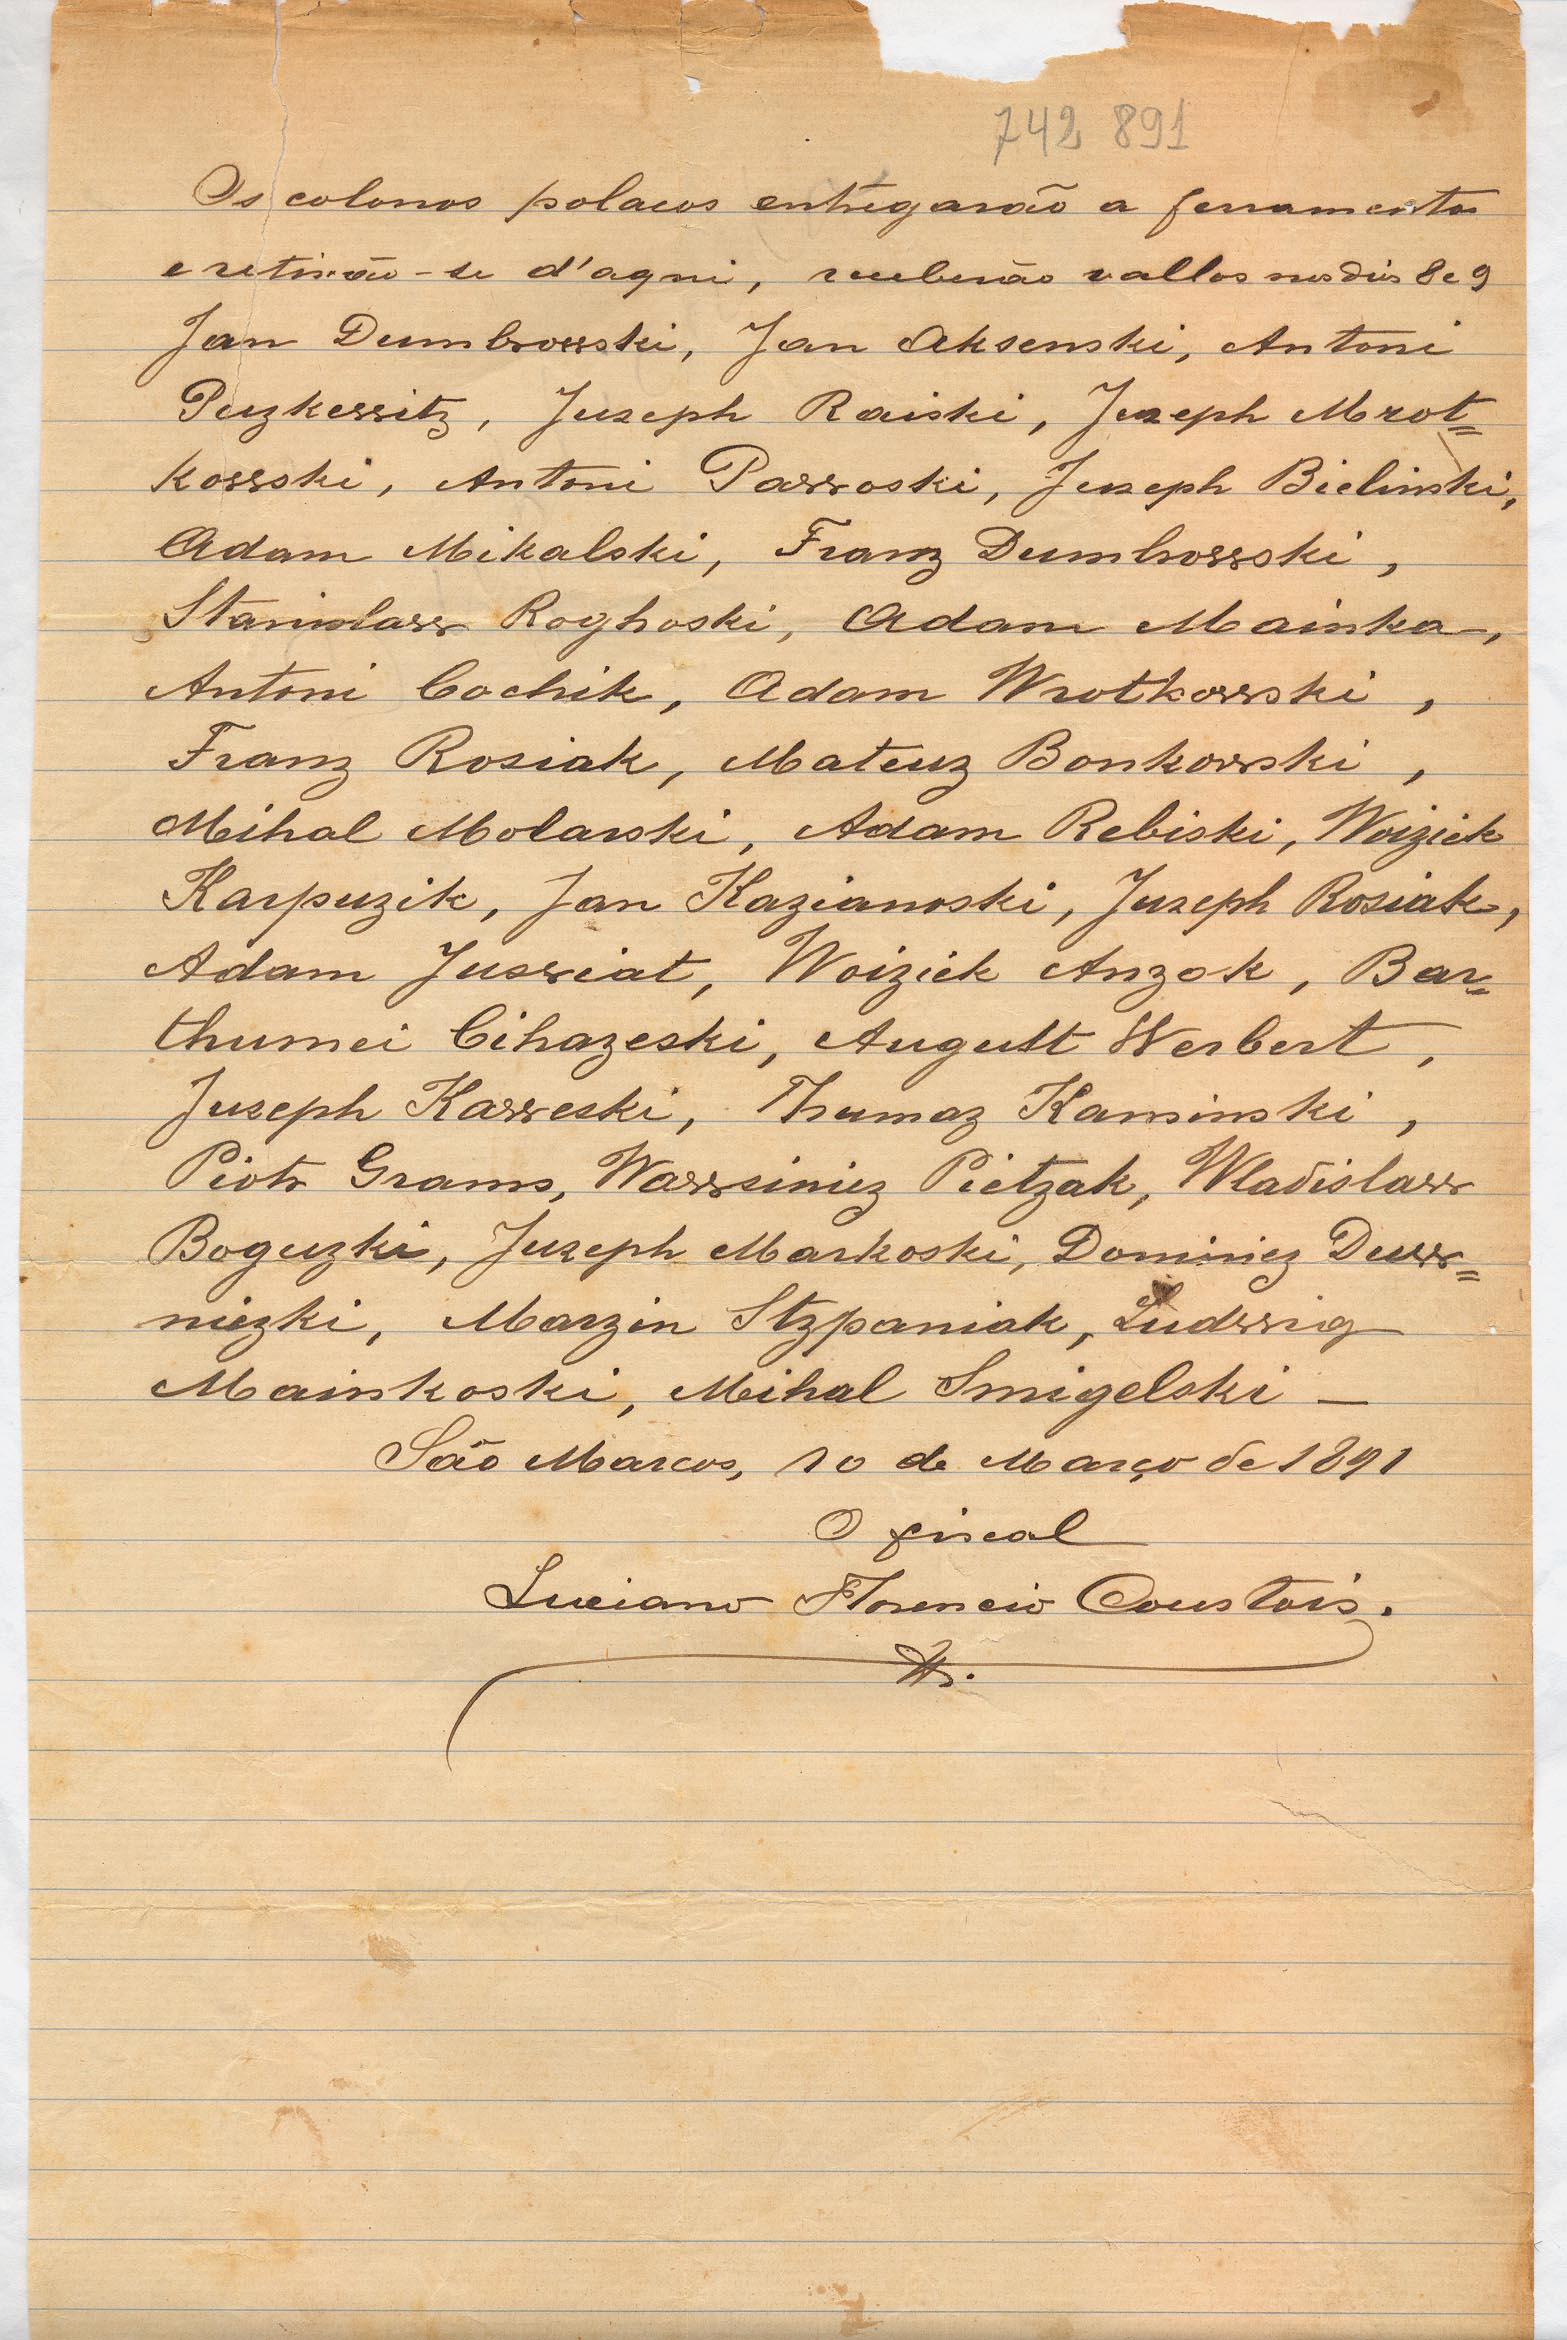 742 891
Os colonos polacos entregarão a ferramenta
e retirão-se d'aqui, receberão vallos nos dias 8 e 9
Jan Dumbrowski, Jan Aksenski, Antoni
Puzkewitz, Juzeph Raiski, Juzeph Mrot=
kowski, Antoni Pawoski, Juzeph Bielinski,
Adam Mikalski, Franz Dumbrowski,
Stanislaw Roghoski, Adam Mainka,
Antoni Cochik, Adam Wrotkowski,
Franz Rosiak, Mateuz Bonkowski,
Mihal Molarski, Adam Rebiski, Woiziek
Karpuzik, Jan Kazianoski, Juzeph Rosiak,
Adam Juswiat, Woiziek Anzok, Bar=
thumei Cihazeski, August Werbert,
Juzeph Kaweski, Thumaz Kaminski,
Piotr Grams, Wawsiniez Pietzak, Wladislaw
Boguzki, Juzeph Markoski, Dominiez Duw=
niezki, Marzin Stzpaniak, Ludwig
Mainkoski, Mihal Smigelski —
São Marcos, 10 de Março de 1891
O fiscal
Luciano Florencio Coustois.